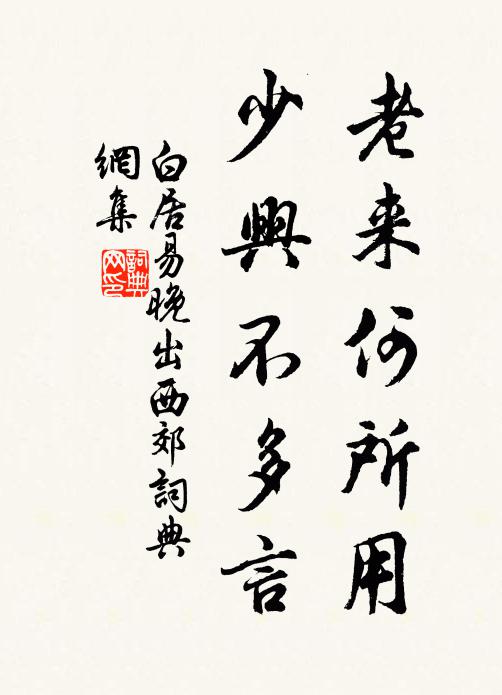 老来何所用
少興不多言
白居易晚出西郊詞典
網集
詞典
网印